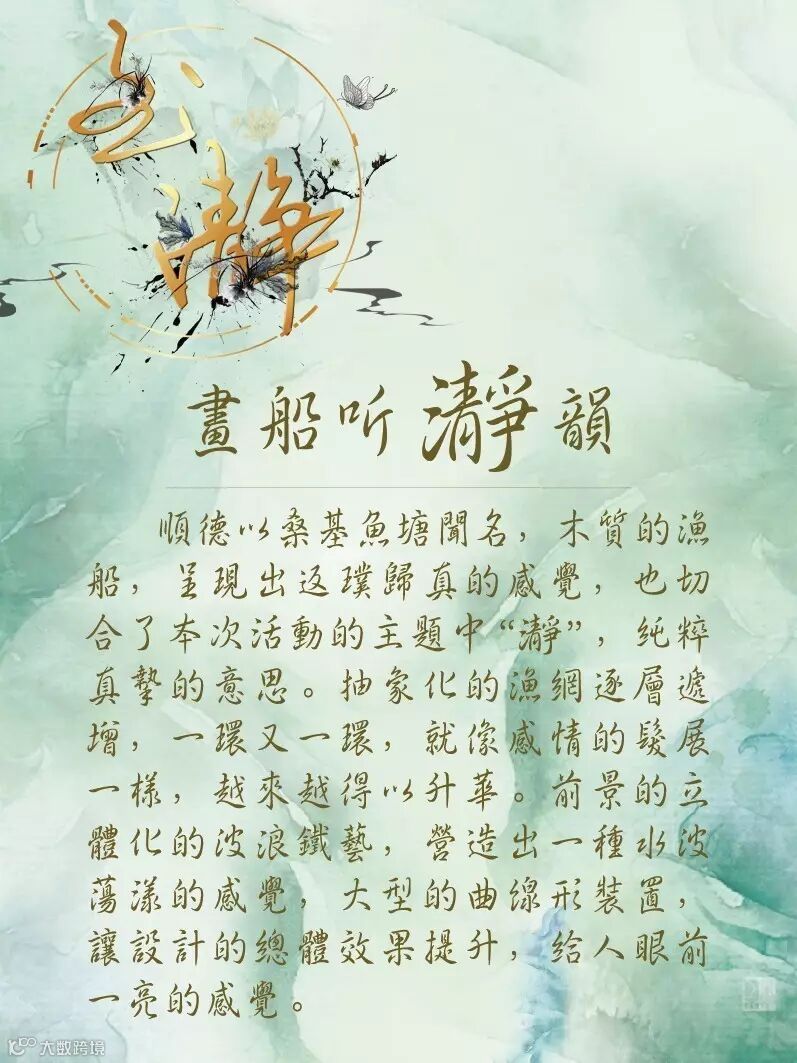 瀞
畫船听瀞韻
順德以桑基魚塘聞名，木質的漁
船，呈現出返璞歸真的感覺，也切
合了本次活動的主題中“瀞”，純粹
真摯的意思。抽象化的漁網逐層遞
增，一環又一環，就像感情的發展
一樣，越來越得以升華。前景的立
體化的波浪鐵藝，營造出一種水波
蕩漾的感覺，大型的曲線形裝置，
讓設計的總體效果提升，給人眼前
一亮的感覺。
大数跨境